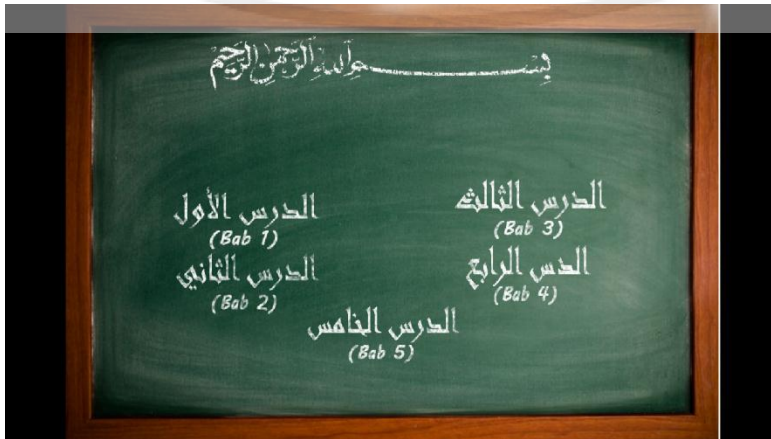 بسم الله الرحمن الرحيم
الدرس الأول
(Bab 1)
الدرس الثاني
(Bab 2)
الدرس الثالث
(Bab 3)
الدس الرابع
(Bab 4)
الدرس الخامس
(Bab 5)